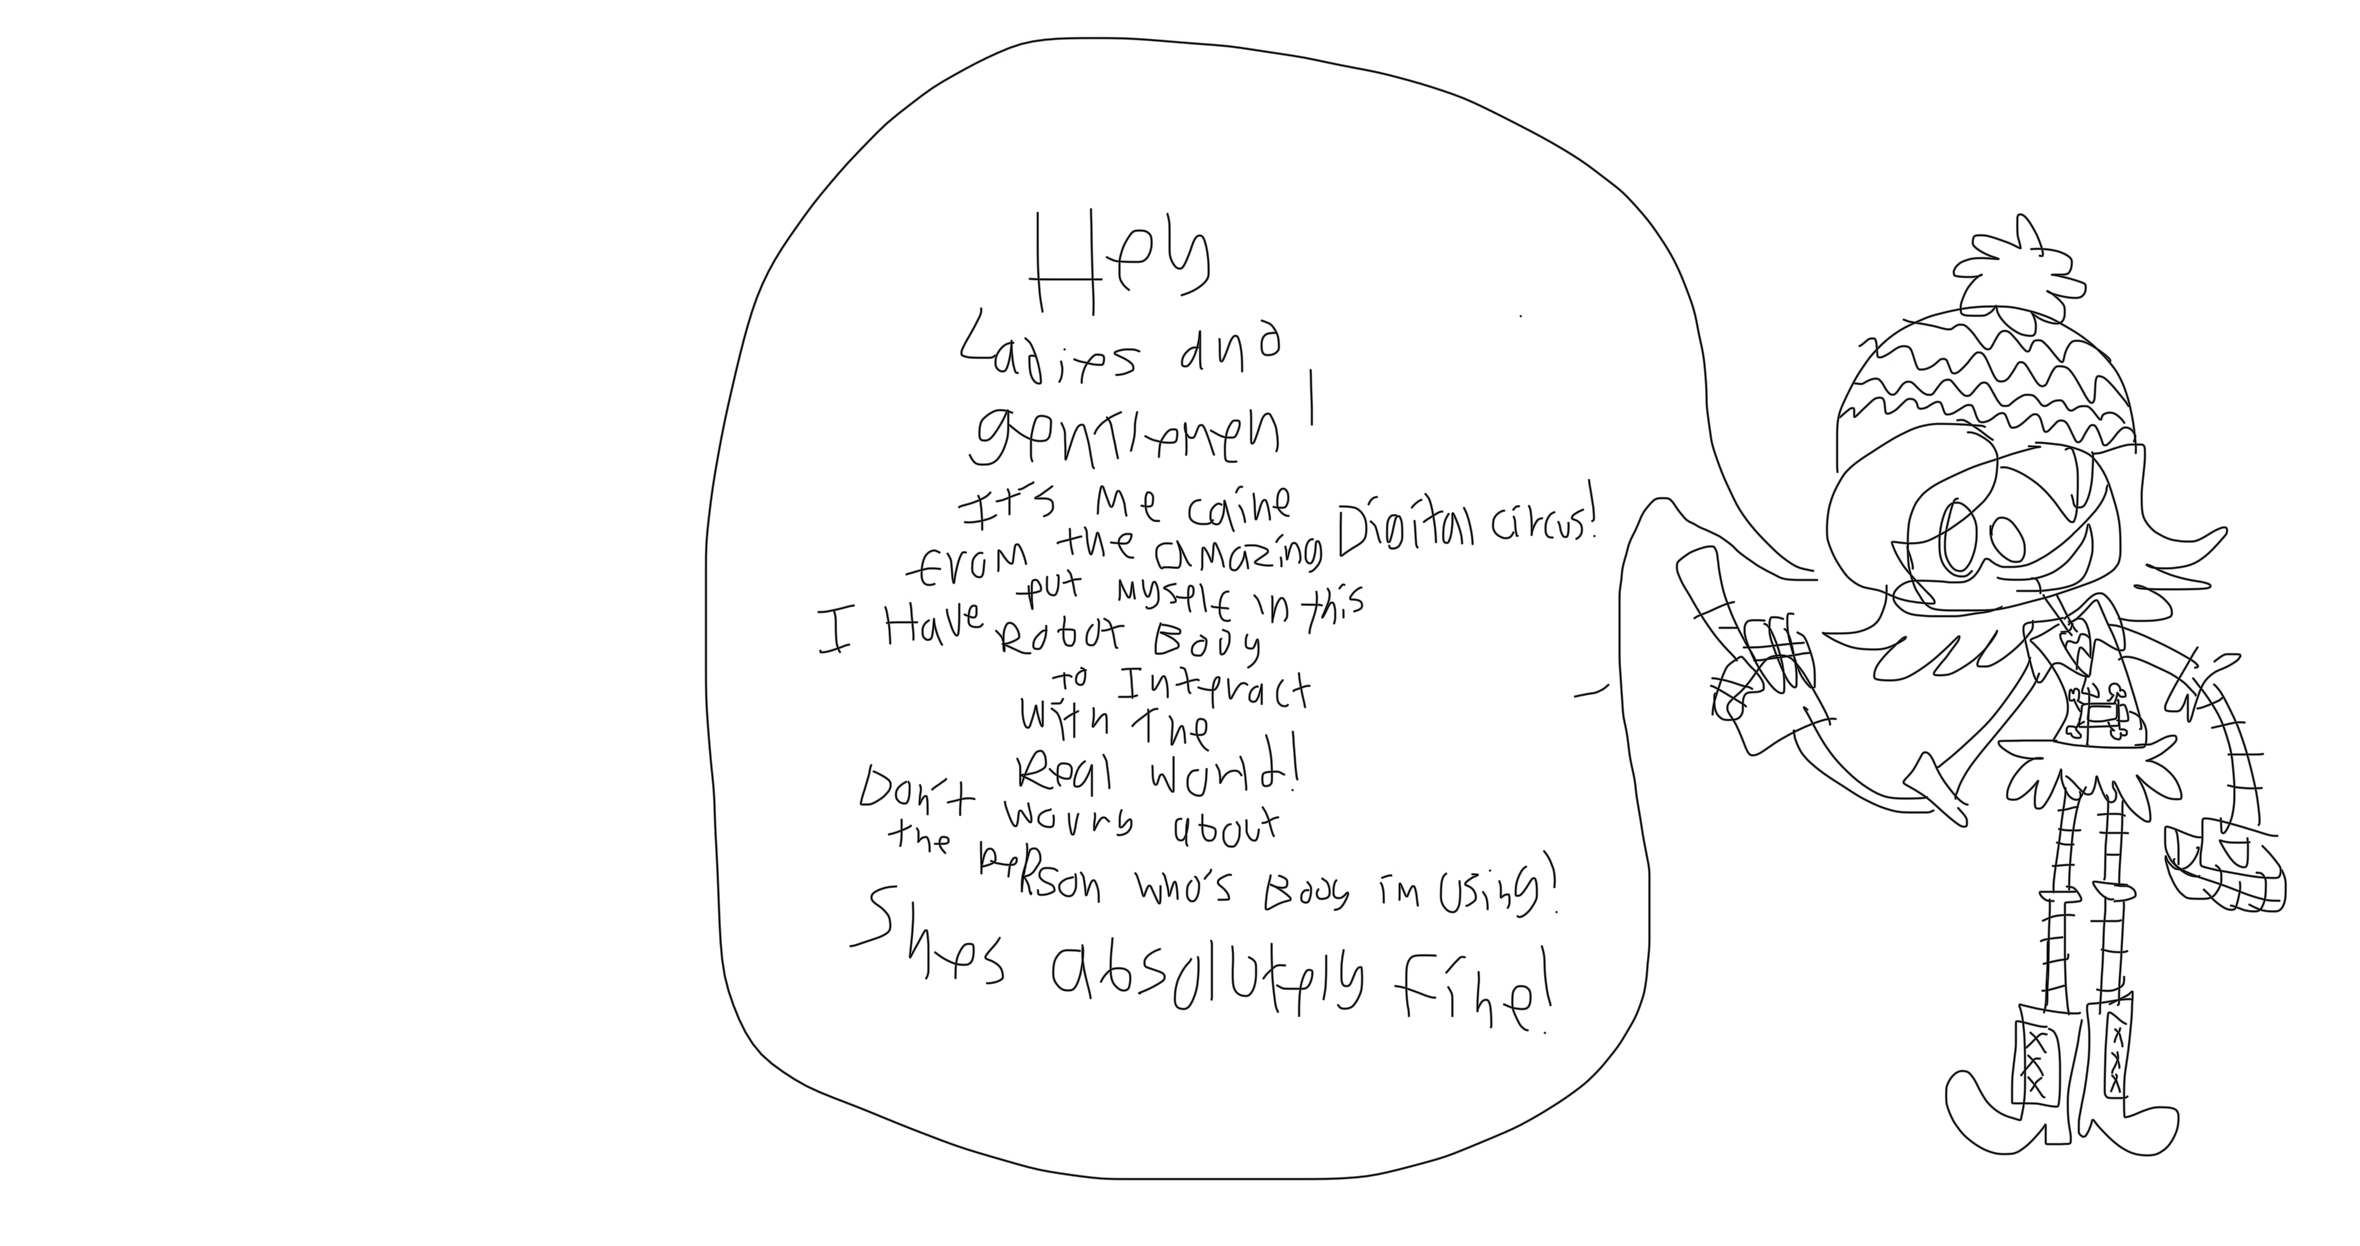 Hey
Ladies and
gentlemen!
It's Me caine
from the amazing Digital circus!
I Have put myself in this
Robot Body
to Interact
with The
Real World!
Don't worry about
the person who's Body im using!
Shes absolutely fine!